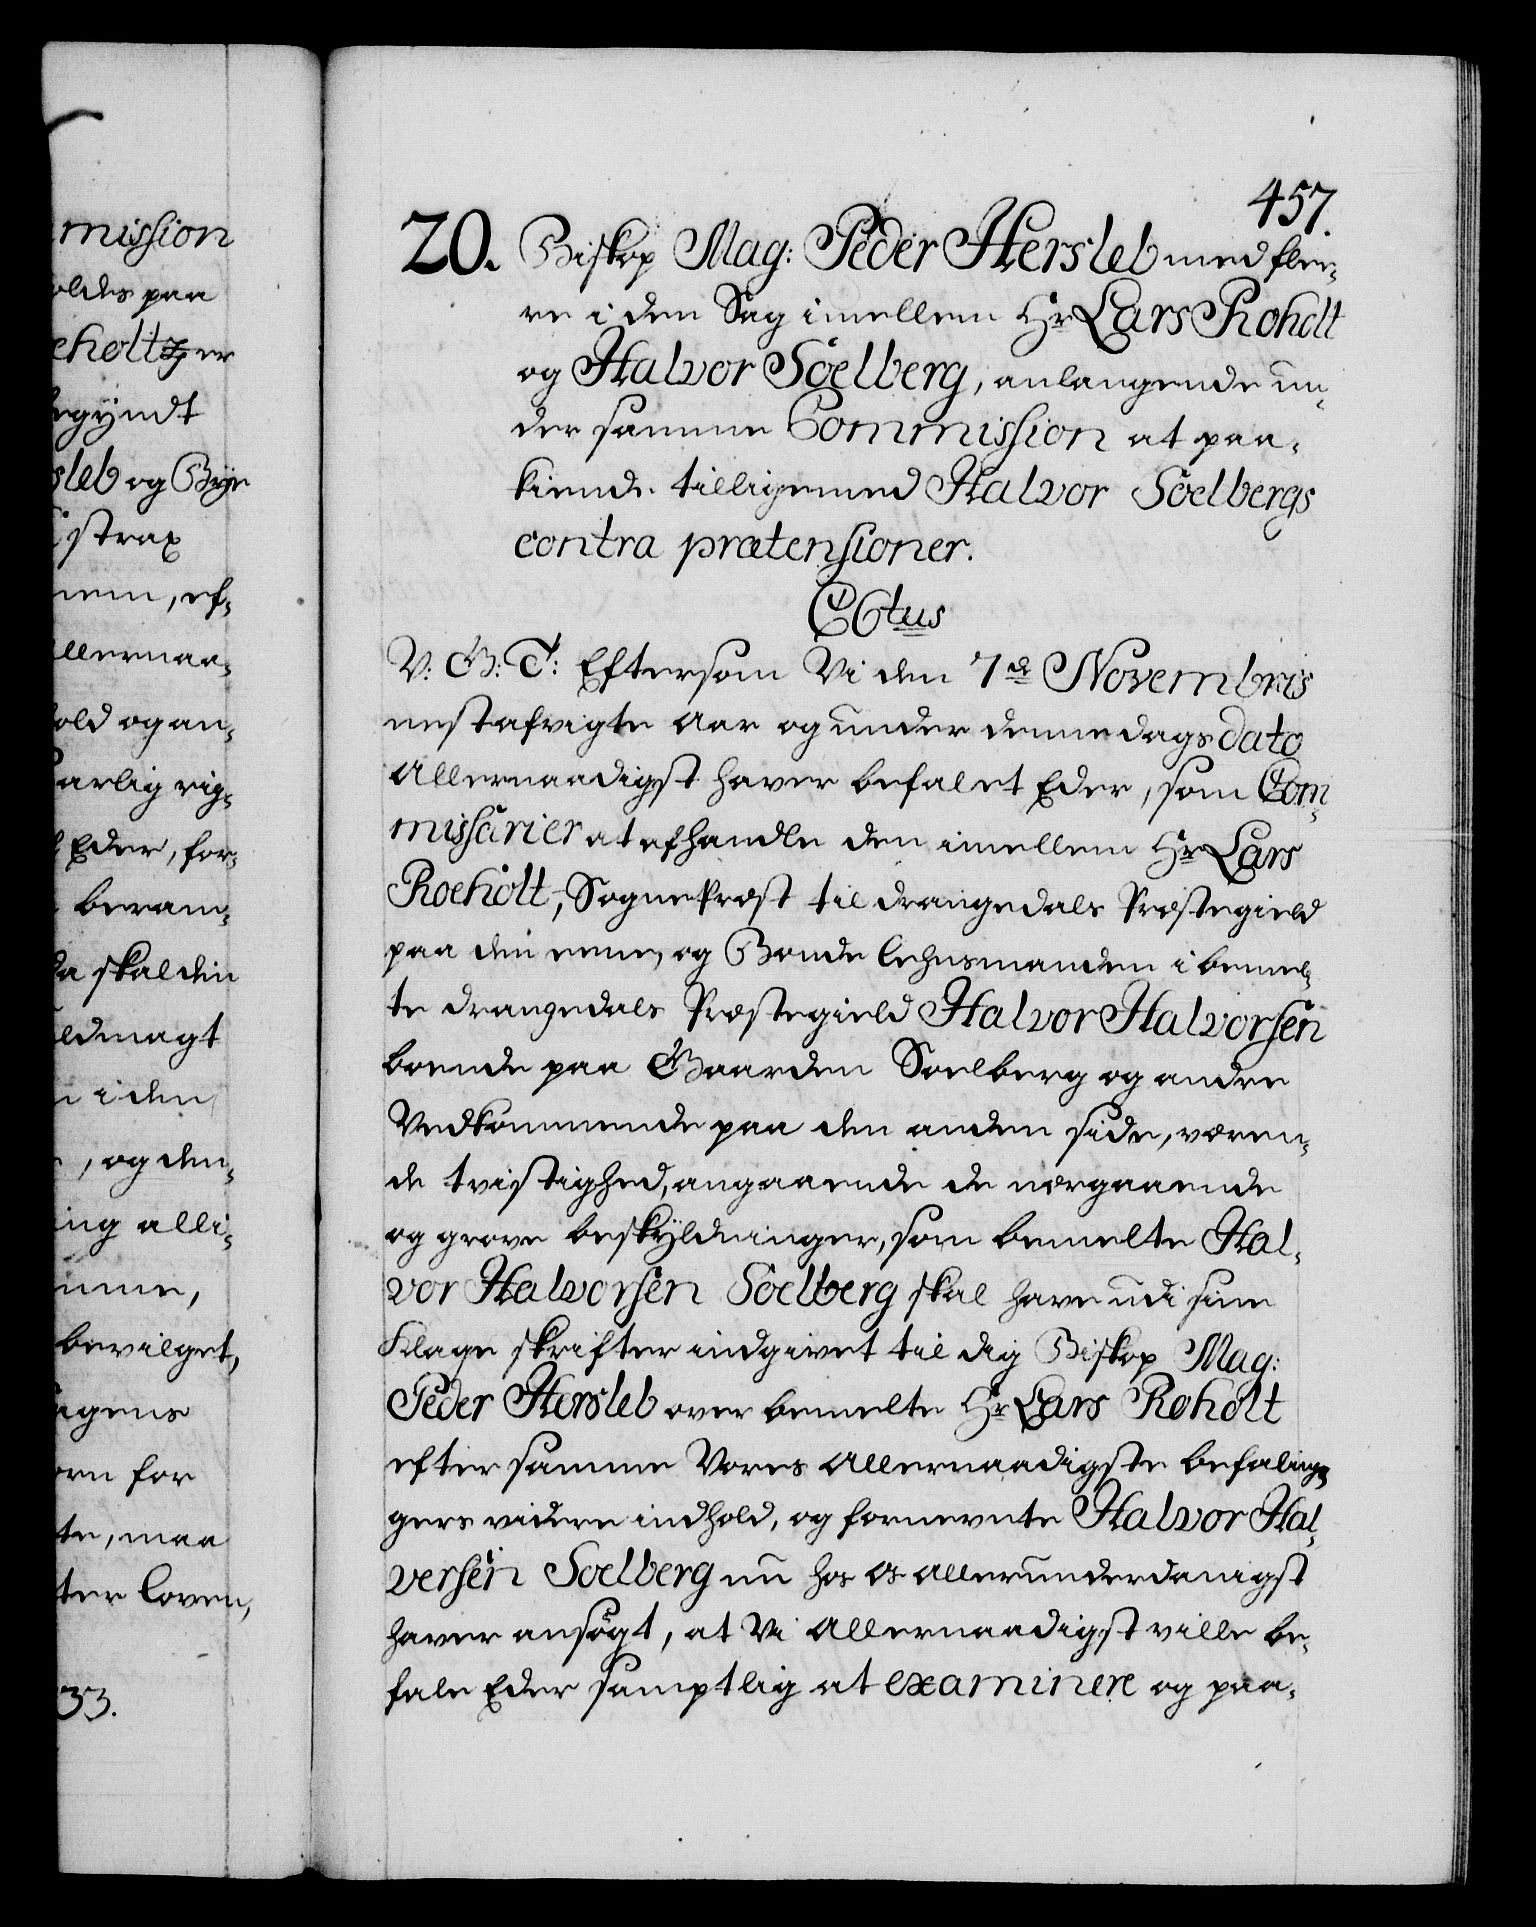 mission
oldes paa
eholt er
egyndt
sleb og Bye
i strax
nem, ef-
llernaa-
old og an-
arlig rig-
Eder, for-
beram-
da skal din
ldmagt
i den
, og den-
ing alli-
mme,
bevilget,
agens
orn for
te, maa
ter Loven,
33.
457.
20. Biskop Mag: Peder Hersleb med flee-
re i den Sag imellem Hr Lars Roholt
og Halvor Söelberg, anlangende un-
der samme Commission at paa-
kiende tilligemed Halvor Söelbergs
contra prætensioner.
C6tus
V: G: T: Eftersom Vi den 7de Novembris
nestafvigte Aar og under denne dags dato
Allernaadigst haver befalet Eder, som Com-
missarier at afhandle den imellem Hr Lars
Roeholt, SognePræst til Drangedals Præstegield
paa den eene, og Bonde Lehnsmanden i bemel-
te Drangedals Præstegield Halvor Halvorsen
boende paa Gaarden Soelberg og andre
Vedkommende paa den anden side, væren-
de tvistighed, angaaende de nærgaaende
og grove beskyldninger, som bemelte Hal-
vor Halvorsen Söelberg skal have udi sine
Klage skrifter indgivet til dig Biskop Mag:
Peder Hersleb over bemelte Hr Lars Roholt
efter samme Vores Allernaadigste befalin-
gers videre indhold, og fornevnte Halvor Hal-
versen Soelberg nu hos os allerunderdanigst
haver ansögt, at Vi Allernaadigst ville be-
fale Eder samptlig at examinere og paa-